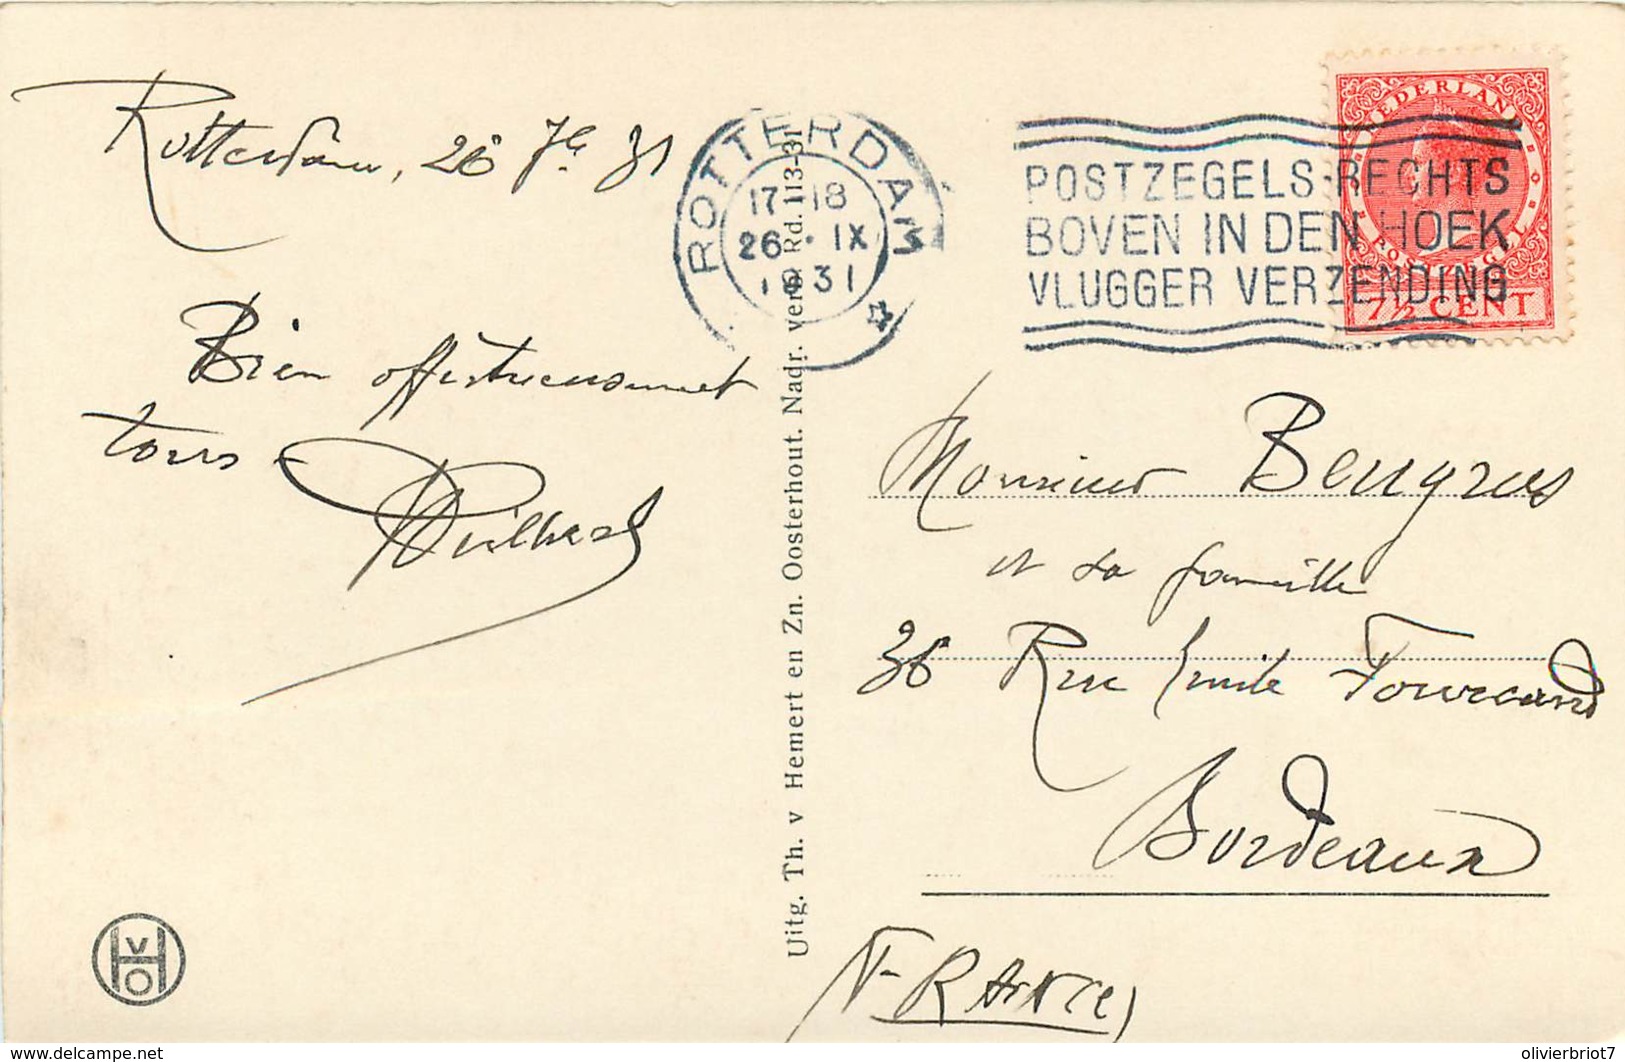 Rotterdam, 26 7bre 31
Bien affectueusement
à tous
ROTTERDAM
17-18
26 · IX
1931
POSTZEGELS RECHTS
BOVEN IN DEN HOEK
VLUGGER VERZENDING
NEDERLAND
POSTZEGEL
7½ CENT
Uitg. Th. v Hemert en Zn. Oosterhout. Nadr. verb. Rd. 113-31
Monsieur
et sa famille
36 Rue Emile Fourcand
Bordeaux
(FRANCE)
VHO
www.delcampe.net
olivierbriot7